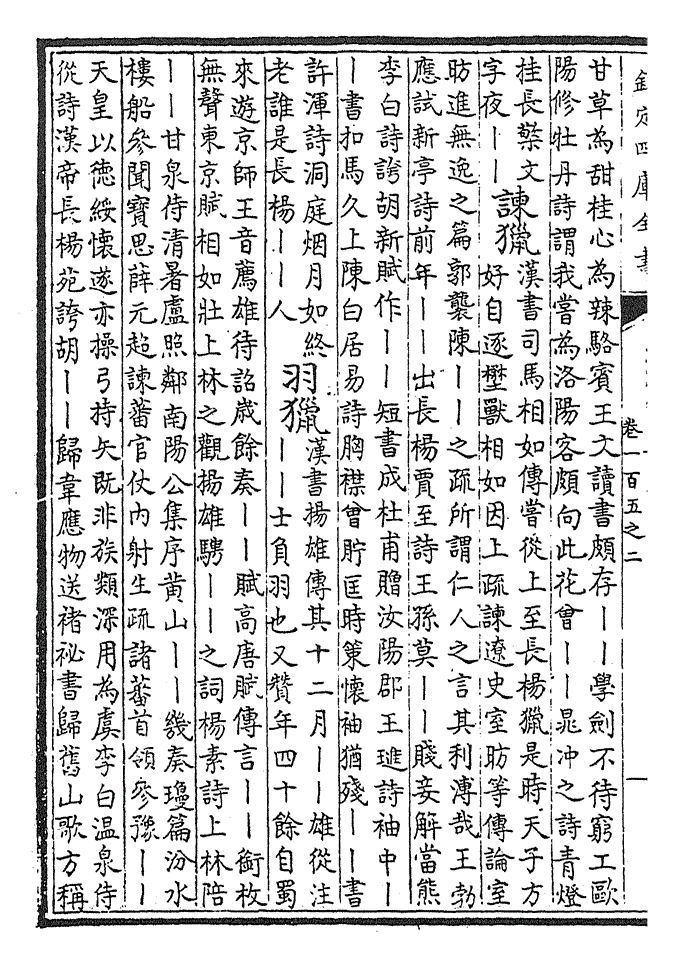 欽定四庫全書
卷一百五之二
甘草為甜桂心為辣駱賓王文讀書頗存丨丨學劍不待窮工歐
陽修牡丹詩謂我嘗為洛陽客頗向此花曾丨丨晁冲之詩青燈
挂長檠文
字夜丨丨
諫獵
漢書司馬相如傳嘗從上至長楊獵是時天子方
好自逐壄獸相如因上疏諫遼史室昉等傳論室
昉進無逸之篇郭襲陳丨丨之疏所謂仁人之言其利溥哉王勃
應試新亭詩前年丨丨出長楊賈至詩王孫莫丨丨賤妾解當熊
李白詩誇胡新賦作丨丨短書成杜甫贈汝陽郡王璡詩袖中丨
丨書扣馬久上陳白居易詩胸襟曾貯匡時策懷袖猶殘丨丨書
許渾詩洞庭烟月如終
老誰是長楊丨丨人
羽獵
漢書揚雄傳其十二月丨丨雄從注
丨丨士負羽也又贊年四十餘自蜀
來遊京師王音薦雄待詔歲餘奏丨丨賦高唐賦傳言丨丨銜枚
無聲東京賦相如壯上林之觀揚雄騁丨丨之詞楊素詩上林陪
丨丨甘泉侍清暑盧照鄰南陽公集序黄山丨丨幾奏瓊篇汾水
樓船參聞寶思薛元超諫蕃官仗内射生疏諸蕃首領參豫丨丨
天皇以徳綏懷遂亦操弓持矢既非族類深用為虞李白温泉侍
從詩漢帝長楊苑誇胡丨丨歸韋應物送褚祕書歸舊山歌方稱